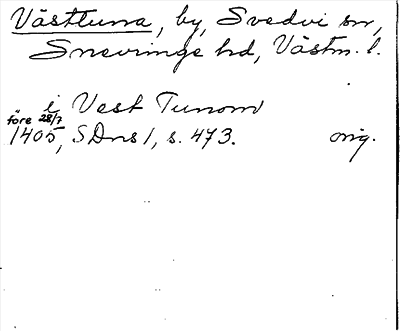 Västtuna, by, Svedvi sn,
Snevringe hd, Västm. l.
i Vest Tunom
före 28/7
1405, SDns 1, s. 473. orig.